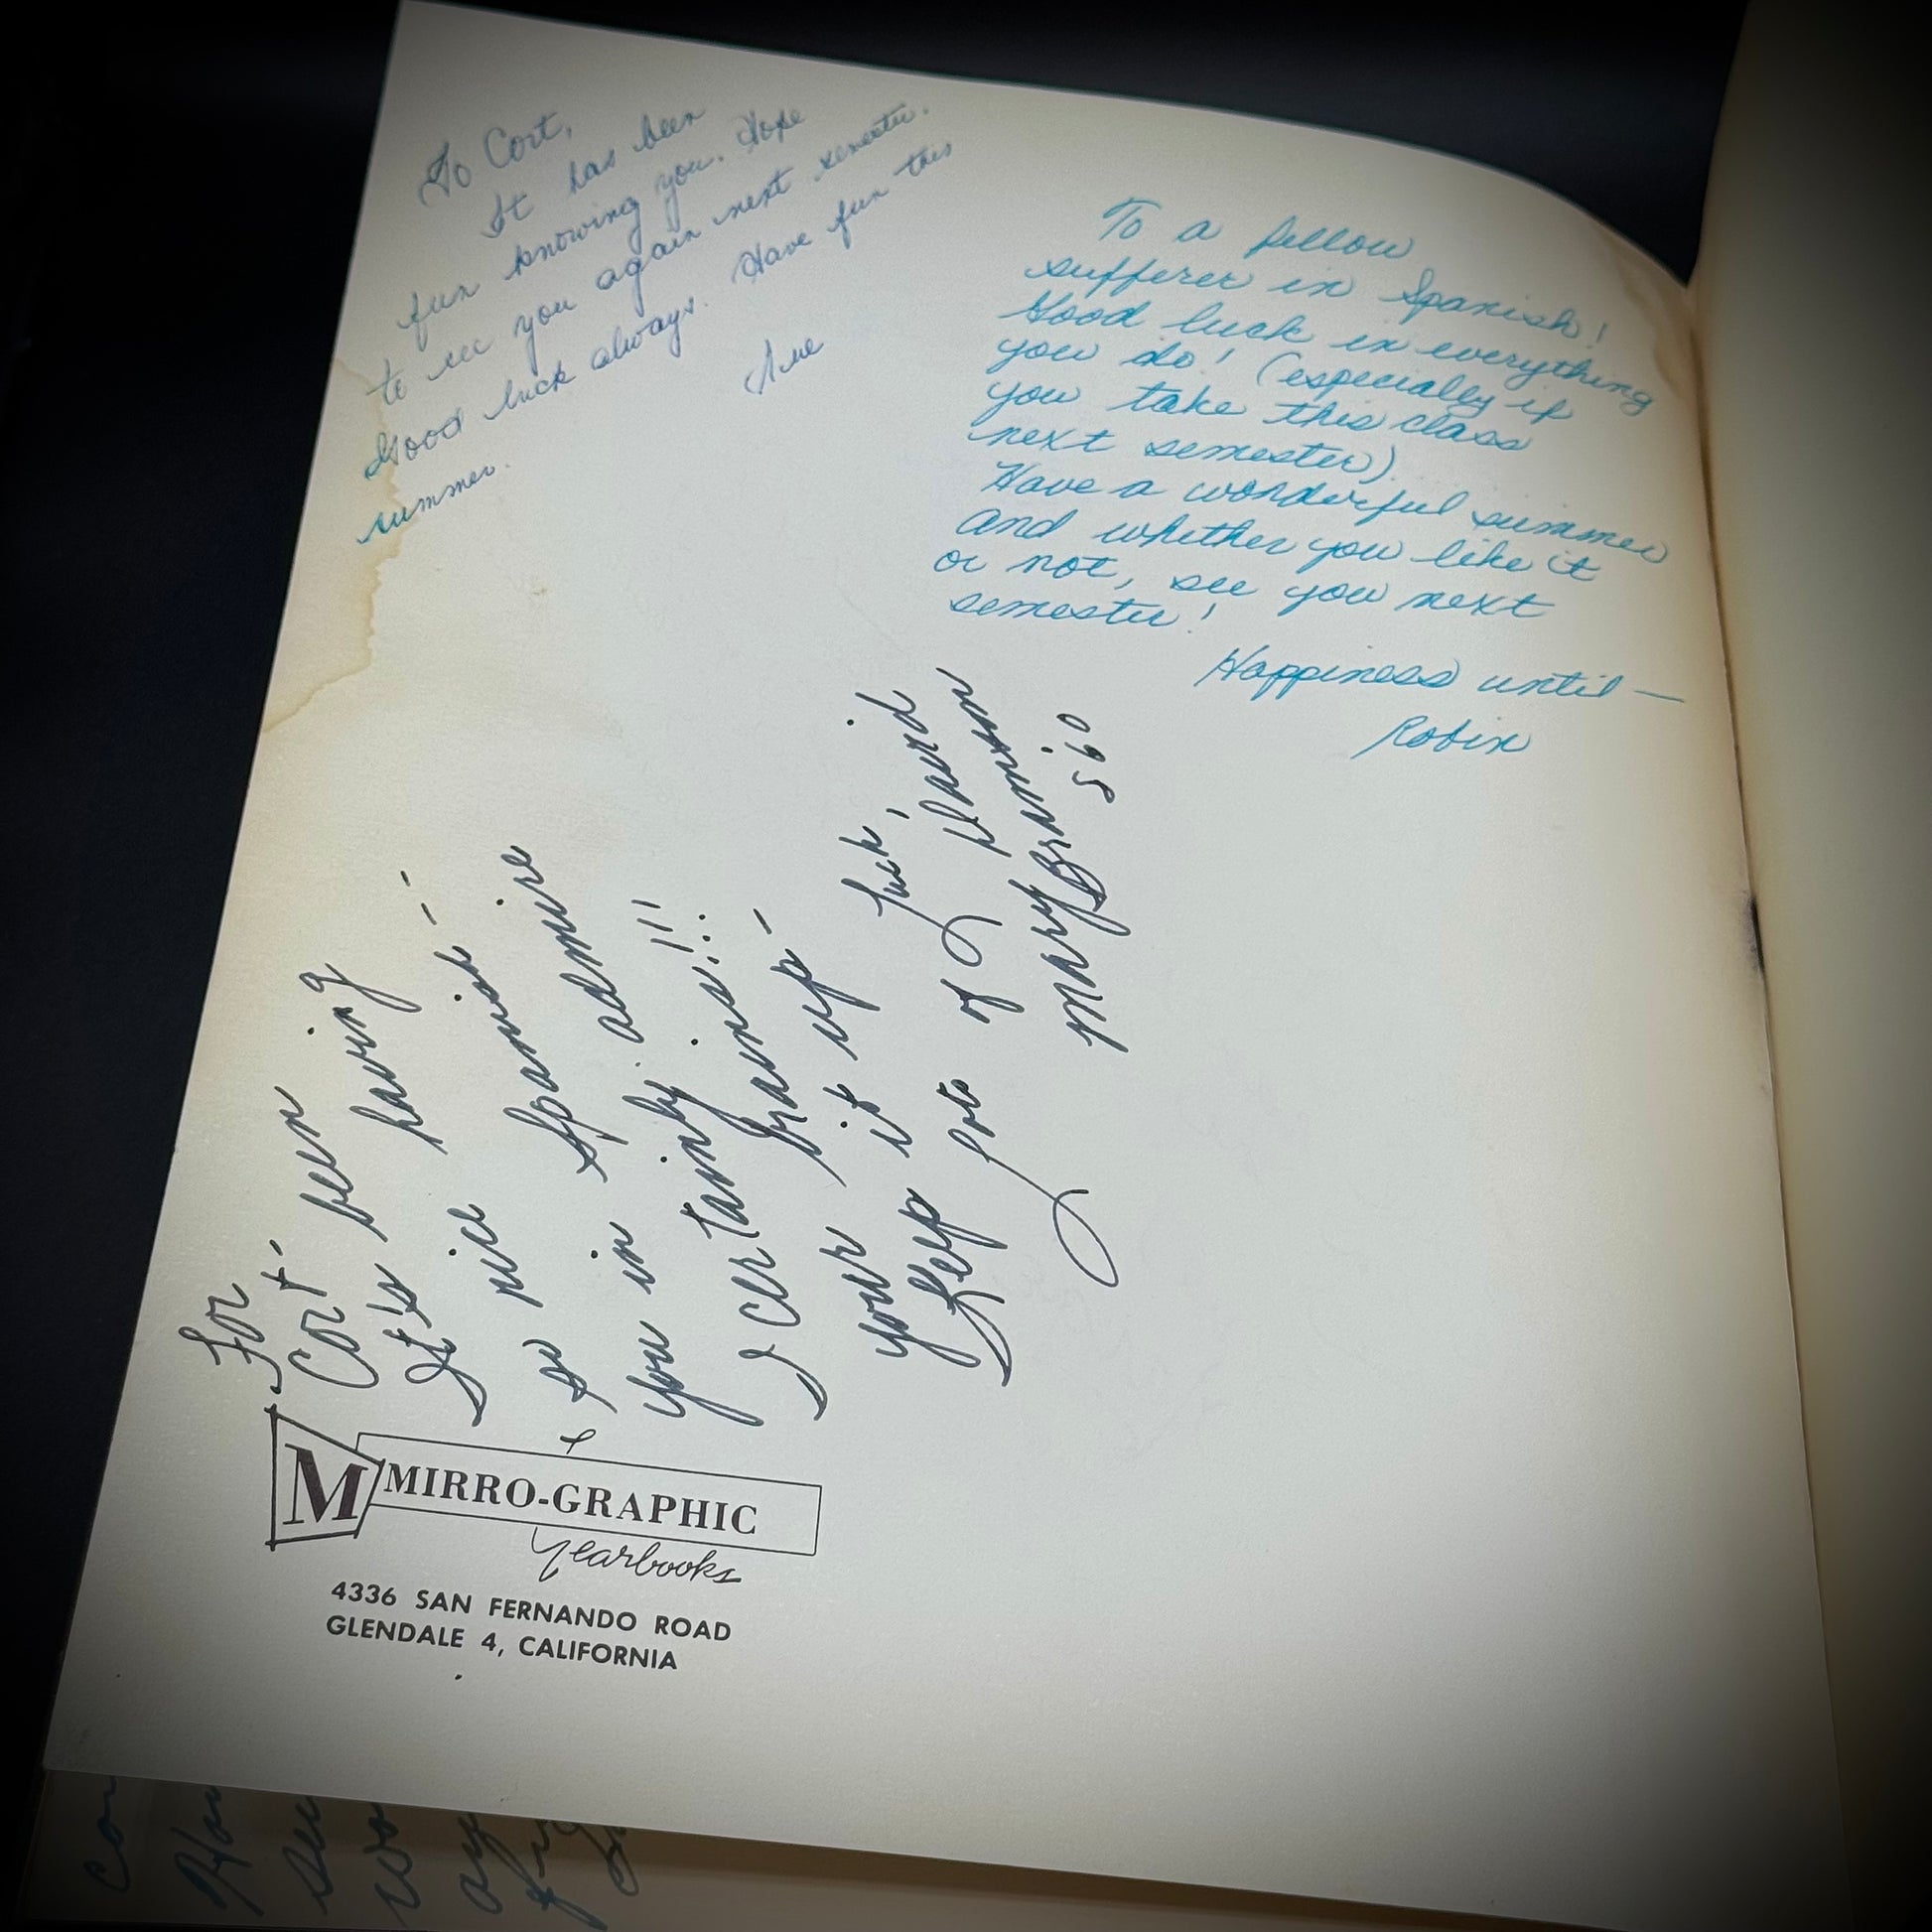 To Cort,
It has been
fun knowing you. Hope
to see you again next semester.
Good luck always. Have fun this
summer.
Sue
To a fellow
sufferer in Spanish!
Good luck in everything
you do! (especially if
you take this class
next semester)
Have a wonderful summer
and whether you like it
or not, see you next
semester!
Happiness until —
Robin
For
Cort -
It's been
so nice having - -
you in Spanish -
I certainly admire
your brains!!!
Keep it up -
Lots of luck,
mary
S'60
M MIRRO-GRAPHIC
Yearbooks
4336 SAN FERNANDO ROAD
GLENDALE 4, CALIFORNIA